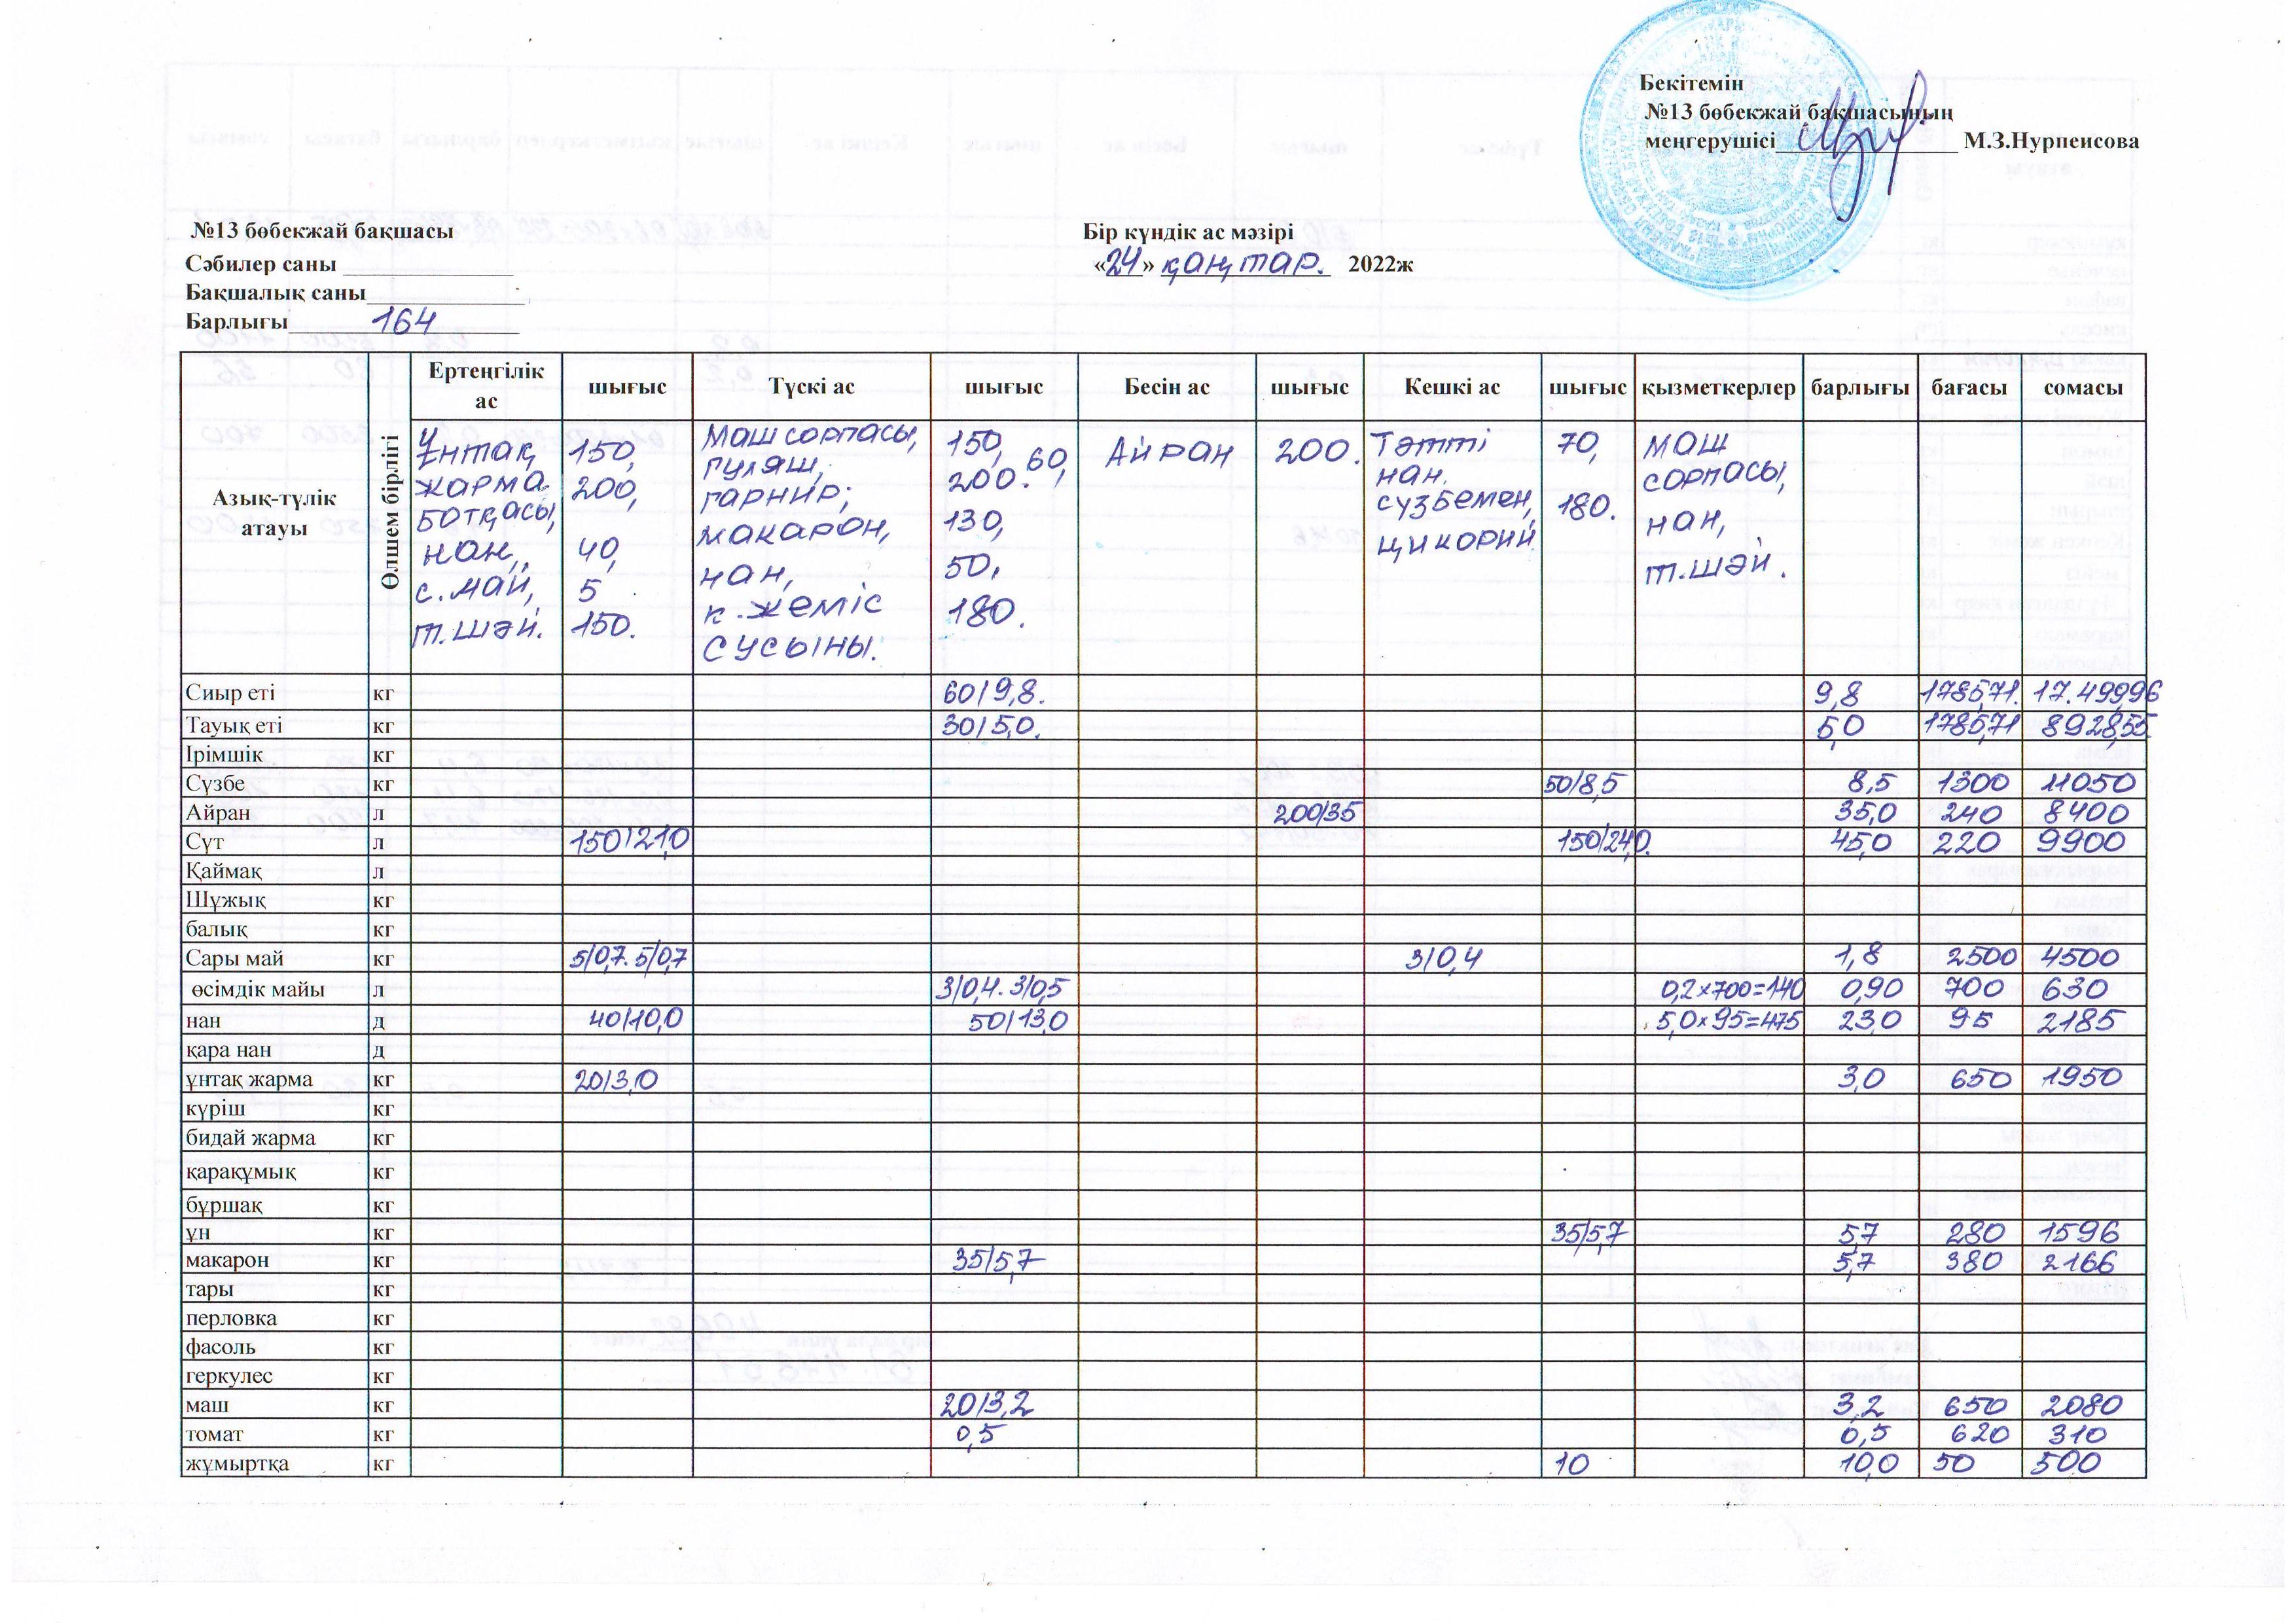 Бекітемін
№13 бөбекжай бақшасының
меңгерушісі М.З.Нурпеисова
№13 бөбекжай бақшасы
Бір күндік ас мәзірі
Сәбилер саны
«24» қаңтар. 2022ж
Бақшалық саны
Барлығы 164
Азық-түлік атауы Өлшем бірлігі Ертеңгілік ас шығыс Түскі ас шығыс Бесін ас шығыс Кешкі ас шығыс қызметкерлер барлығы бағасы сомасы
Ұнтақ
жарма
ботқасы,
нан,
с.май,
т.шәй.
150,
200,
40,
5
150.
Маш сорпасы,
гуляш,
гарнир;
макарон,
нан,
к.жеміс
сусыны.
150,
200. 60,
130,
50,
180.
Айран
200.
Тәтті
нан.
сүзбемен,
цикорий
70,
180.
маш
сорпасы,
нан,
т.шәй.
Сиыр еті кг 60/9,8. 9,8 1785,71. 17.499,96
Тауық еті кг 30/5,0. 5,0 1785,71 8928,55.
Ірімшік кг
Сүзбе кг 50/8,5 8,5 1300 11050
Айран л 200/35 35,0 240 8400
Сүт л 150/21,0 150/24,0. 45,0 220 9900
Қаймақ л
Шұжық кг
балық кг
Сары май кг 5/0,7. 5/0,7 3/0,4 1,8 2500 4500
өсімдік майы л 3/0,4. 3/0,5 0,2×700=140 0,90 700 630
нан д 40/10,0 50/13,0 5,0×95=475 23,0 95 2185
қара нан д
ұнтақ жарма кг 20/3,0 3,0 650 1950
күріш кг
бидай жарма кг
қарақұмық кг
бұршақ кг
ұн кг 35/5,7 5,7 280 1596
макарон кг 35/5,7 5,7 380 2166
тары кг
перловка кг
фасоль кг
геркулес кг
маш кг 20/3,2 3,2 650 2080
томат кг 0,5 0,5 620 310
жұмыртқа кг 10 10,0 50 500